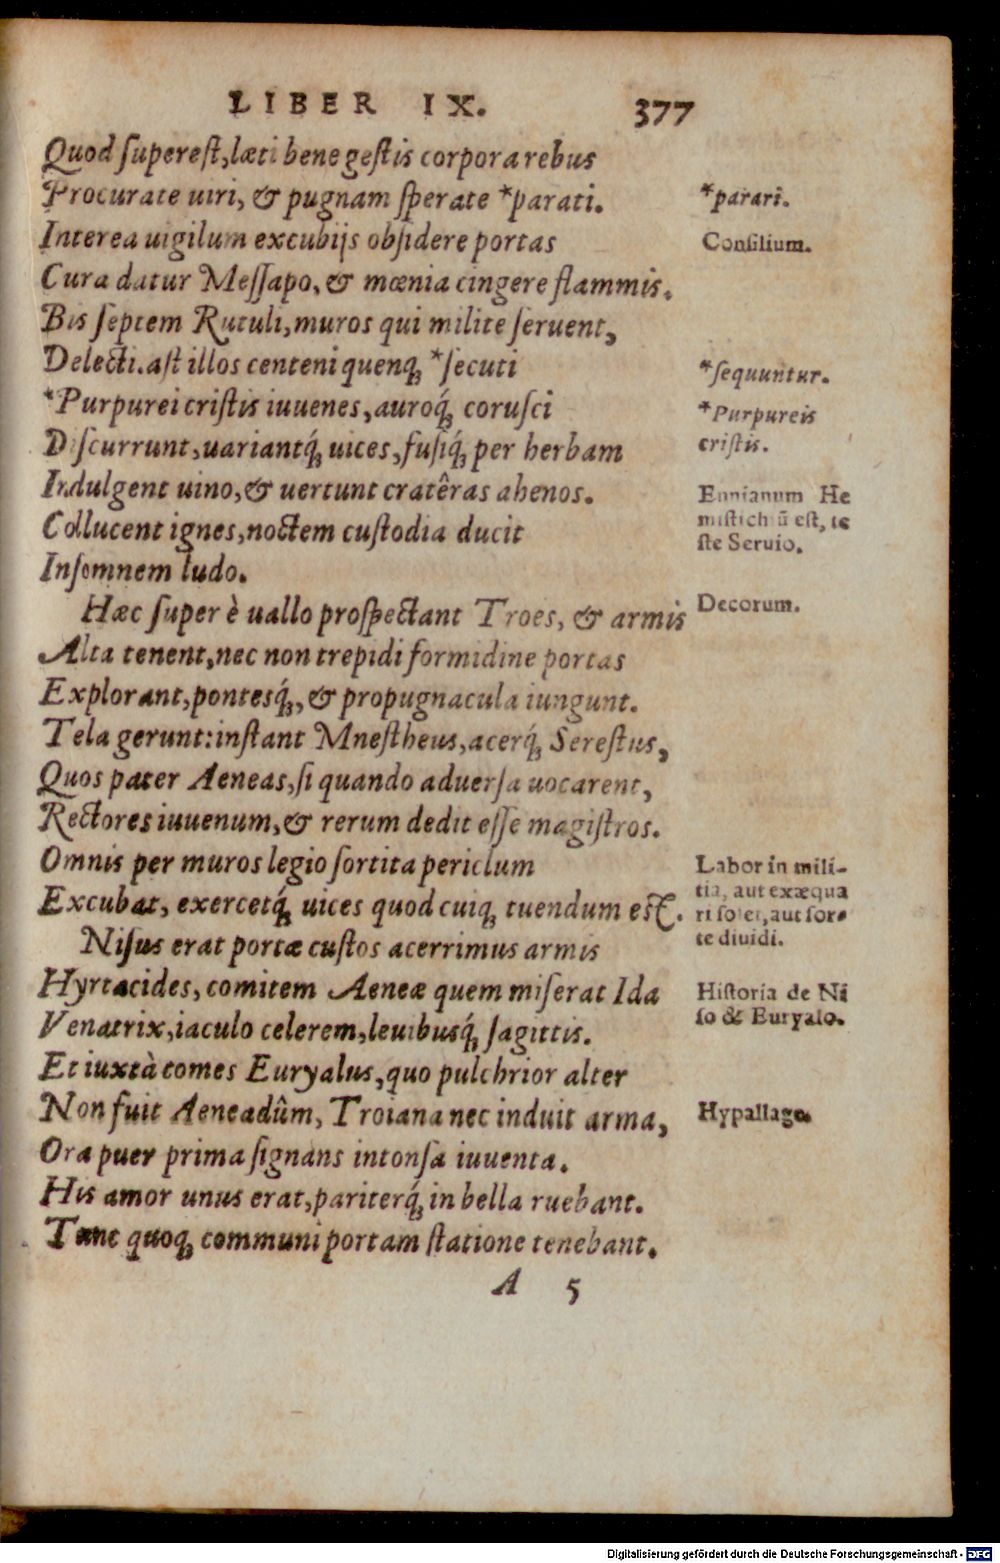 LIBER IX. 377
Quod ſupereſt, læti bene geſtis corpora rebus
Procurate uiri, & pugnam ſperate *parati.
*parari.
Interea uigilum excubijs obſidere portas
Conſilium.
Cura datur Meſſapo, & mœnia cingere flammis.
Bis ſeptem Rutuli, muros qui milite ſeruent,
Delecti. aſt illos centeni quenq; *ſecuti
*ſequuntur.
*Purpurei criſtis iuuenes, auroq́; coruſci
*Purpureis
criſtis.
Diſcurrunt, uariantq́; uices, fuſiq́; per herbam
Indulgent uino, & uertunt cratêras ahenos.
Ennianum He
miſtichiũ eſt, te
ſte Seruio.
Collucent ignes, noctem cuſtodia ducit
Inſomnem ludo.
Hæc ſuper è uallo proſpectant Troes, & armis
Decorum.
Alta tenent, nec non trepidi formidine portas
Explorant, pontesq́;, & propugnacula iungunt.
Tela gerunt: inſtant Mneſtheus, acerq́; Sereſtus,
Quos pater Aeneas, ſi quando aduerſa uocarent,
Rectores iuuenum, & rerum dedit eſſe magiſtros.
Omnis per muros legio ſortita periclum
Labor in mili-
tia, aut exæqua
ri ſolet, aut ſor-
te diuidi.
Excubat, exercetq́; uices quod cuiq; tuendum eſt.
Niſus erat portæ cuſtos acerrimus armis
Hyrtacides, comitem Aeneæ quem miſerat Ida
Hiſtoria de Ni
ſo & Euryalo.
Venatrix, iaculo celerem, leuibusq́; ſagittis.
Et iuxtà comes Euryalus, quo pulchrior alter
Non fuit Aeneadûm, Troiana nec induit arma,
Hypallage.
Ora puer prima ſignans intonſa iuuenta.
His amor unus erat, pariterq́; in bella ruebant.
Tunc quoq; communi portam ſtatione tenebant.
A 5
Digitalisierung gefördert durch die Deutsche Forschungsgemeinschaft - DFG